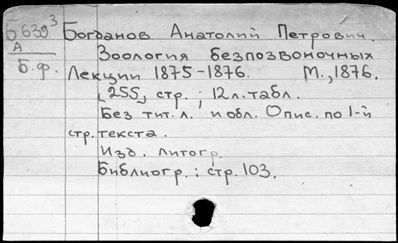 Б 639³ Богданов Анатолий Петрович.
А
Б.ф.
Зоология беспозвоночных
Лекции 1875-1876. М., 1876.
[255] стр.; 12 л. табл.
Без тит. л. и обл. Опис. по 1-й
стр. текста.
Изд. литогр.
Библиогр.: стр. 103.